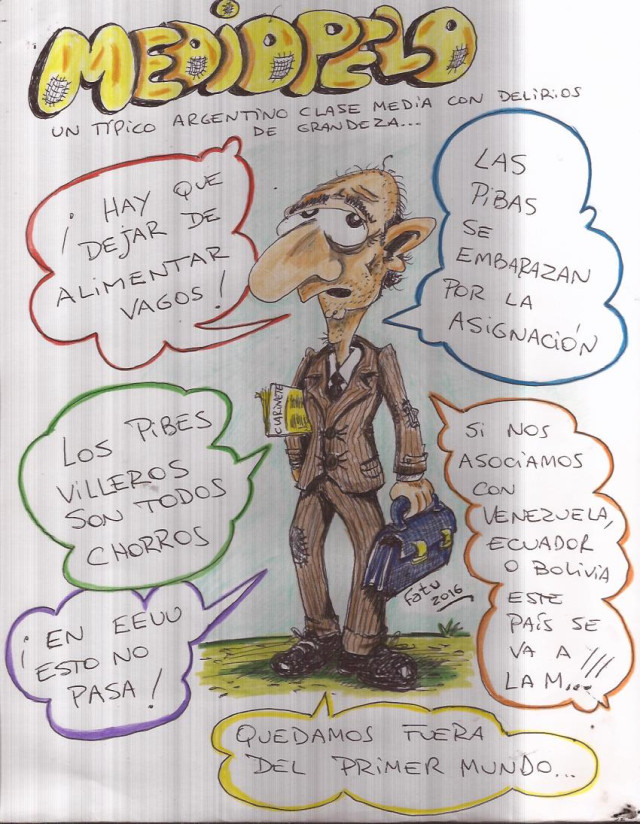 MEDIOPELO
UN TÍPICO ARGENTINO CLASE MEDIA CON DELIRIOS
DE GRANDEZA...
¡ HAY QUE
DEJAR DE
ALIMENTAR
VAGOS !
LAS
PIBAS
SE
EMBARAZAN
POR LA
ASIGNACIÓN
CLARINETE
LOS PIBES
VILLEROS
SON TODOS
CHORROS
SI NOS
ASOCIAMOS
CON
VENEZUELA,
ECUADOR
O BOLIVIA
ESTE
PAÍS SE
VA A
LA M...
¡ EN EEUU
ESTO NO
PASA !
Fatu
2016
QUEDAMOS FUERA
DEL PRIMER MUNDO...